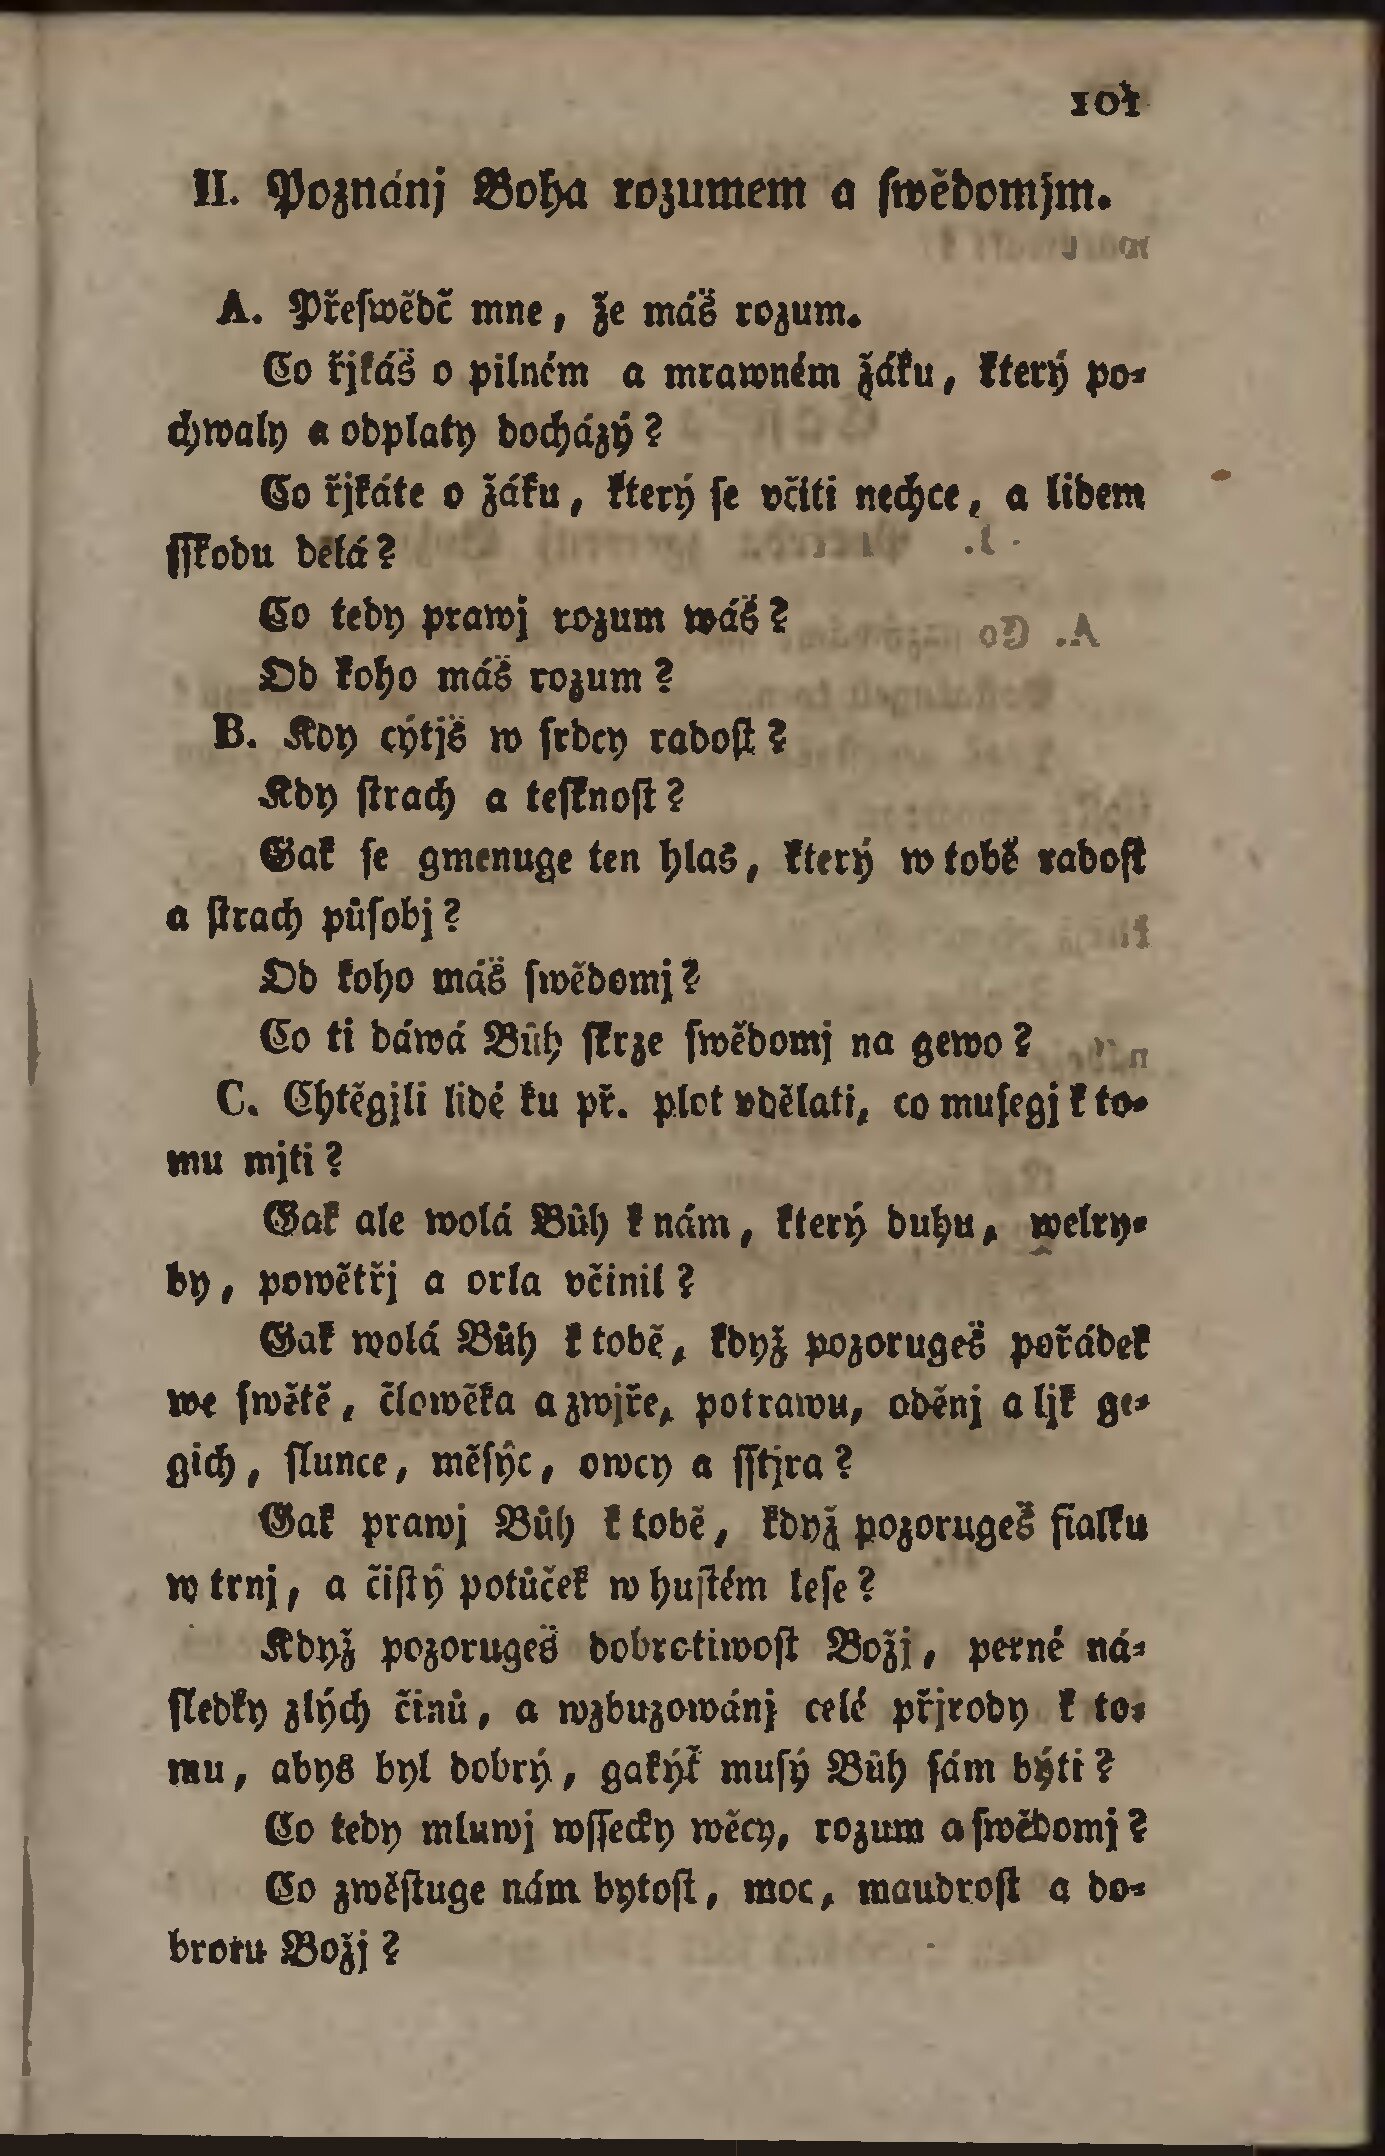 101
II. Poznánj Boha rozumem a ſwědomjm.
A. Přeſwědč mne, že máš rozum.
Co řjkáš o pilném a mrawném žáku, který po-
chwaly a odplaty docházý?
Co řjkáte o žáku, který ſe včiti nechce, a lidem
ſſkodu delá?
Co tedy prawj rozum wáš?
Od koho máš rozum?
B. Kdy cýtjš w ſrdcy radoſt?
Kdy ſtrach a teſknoſt?
Gak ſe gmenuge ten hlas, který w tobě radoſt
a ſtrach půſobj?
Od koho máš ſwědomj?
Co ti dáwá Bůh ſkrze ſwědomj na gewo?
C. Chtěgjli lidé ku př. plot vdělati, co muſegj k to-
mu mjti?
Gak ale wolá Bůh k nám, který duhu, welry-
by, powětřj a orla včinil?
Gak wolá Bůh k tobě, když pozorugeš pořádek
we ſwětě, člowěka a zwjře, potrawu, oděnj a ljk ge-
gich, ſlunce, měſýc, owcy a ſſtjra?
Gak prawj Bůh k tobě, když pozorugeš fialku
w trnj, a čiſtý potůček w huſtém leſe?
Když pozorugeš dobrotiwoſt Božj, perné ná-
ſledky zlých činů, a wzbuzowánj celé přjrody k to-
mu, abys byl dobrý, gakýť muſý Bůh ſám býti?
Co tedy mluwj wſſecky wěcy, rozum a ſwědomj?
Co zwěſtuge nám bytoſt, moc, maudroſt a do-
brotu Božj?